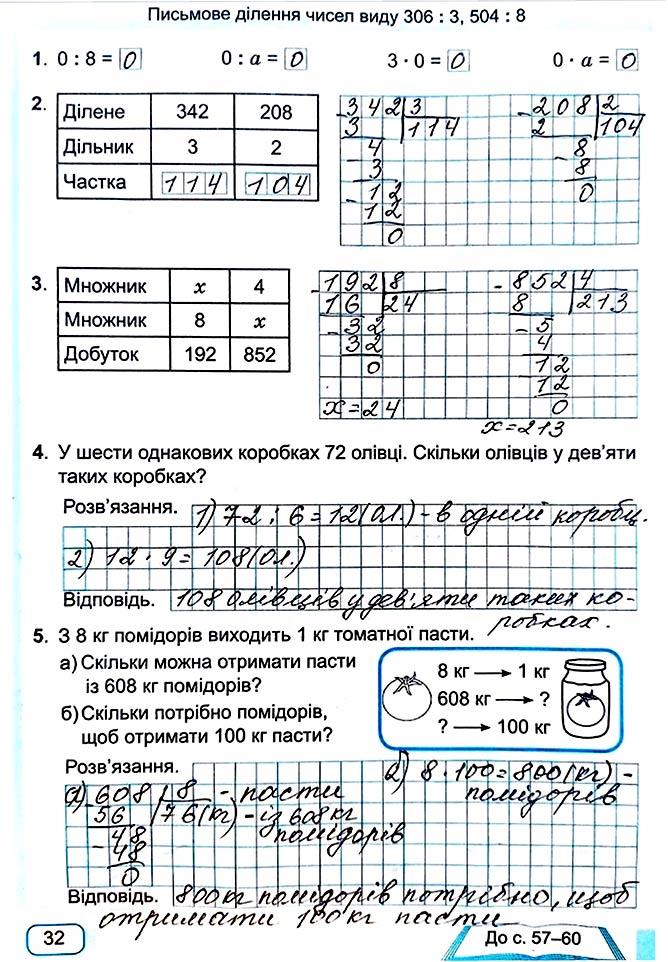 Письмове ділення чисел виду 306 : 3, 504 : 8
1. 0 : 8 = 0 0 : a = 0 3 · 0 = 0 0 · a = 0
2. Ділене 342 208
Дільник 3 2
Частка 114 104
- 342 | 3
3 | 114
- 4
3
- 12
12
0
- 208 | 2
2 | 104
- 8
8
0
3. Множник x 4
Множник 8 x
Добуток 192 852
- 192 | 8
16 | 24
- 32
32
0
x = 24
- 852 | 4
8 | 213
- 5
4
12
12
0
x = 213
4. У шести однакових коробках 72 олівці. Скільки олівців у дев'яти
таких коробках?
Розв'язання. 1) 72 : 6 = 12 (ол.) - в одній коробц.
2) 12 · 9 = 108 (ол.)
Відповідь. 108 олівців у дев'яти таких ко-
робках.
5. З 8 кг помідорів виходить 1 кг томатної пасти.
а) Скільки можна отримати пасти
із 608 кг помідорів?
б) Скільки потрібно помідорів,
щоб отримати 100 кг пасти?
8 кг → 1 кг
608 кг → ?
? → 100 кг
Розв'язання.
1) - 608 | 8 - пасти
56 | 76 (кг) - із 608 кг
- 48 помідорів
48
0
2) 8 · 100 = 800 (кг) -
помідорів
Відповідь. 800 кг помідорів потрібно, щоб
отримати 100 кг пасти
32
До с. 57–60